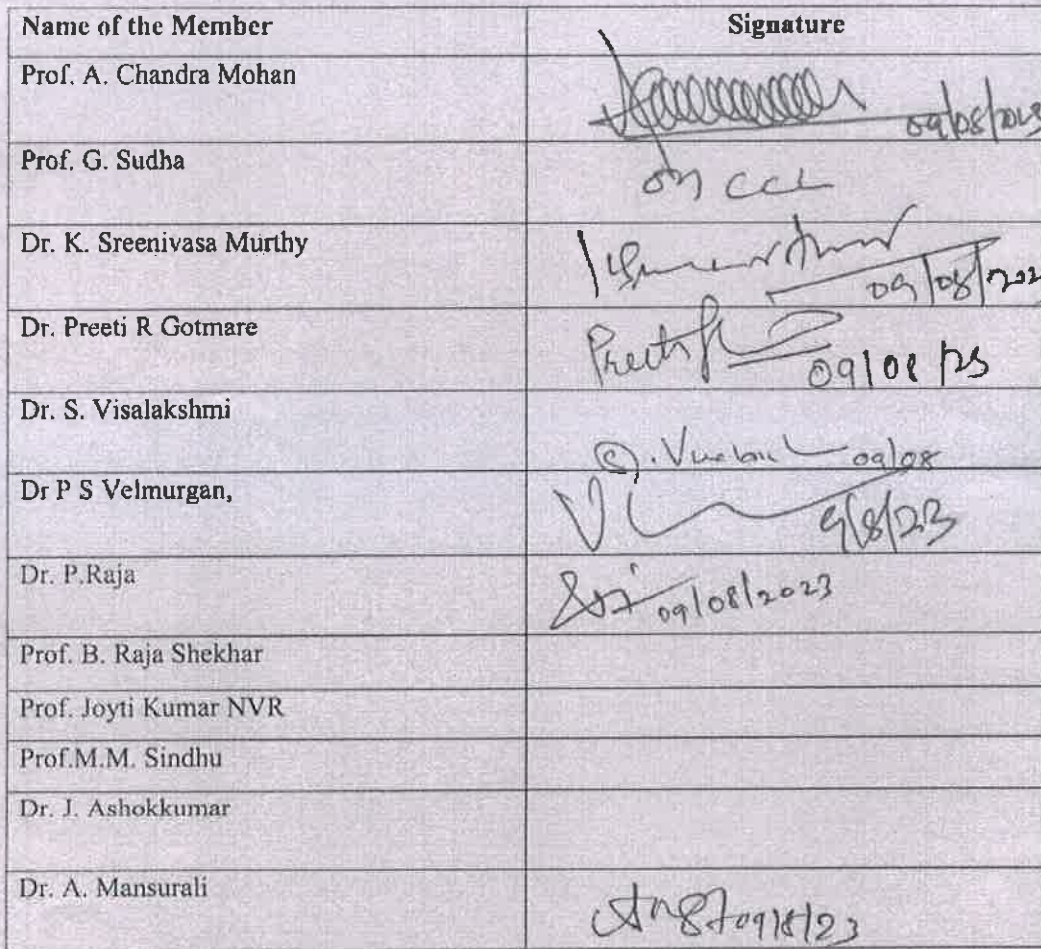 Name of the Member Signature
Prof. A. Chandra Mohan 09/08/2023
Prof. G. Sudha on CCL
Dr. K. Sreenivasa Murthy 09/08/202
Dr. Preeti R Gotmare 09/08/23
Dr. S. Visalakshmi 09/08
Dr P S Velmurgan, 9/8/23
Dr. P.Raja 09/08/2023
Prof. B. Raja Shekhar
Prof. Joyti Kumar NVR
Prof.M.M. Sindhu
Dr. J. Ashokkumar
Dr. A. Mansurali 09/8/23